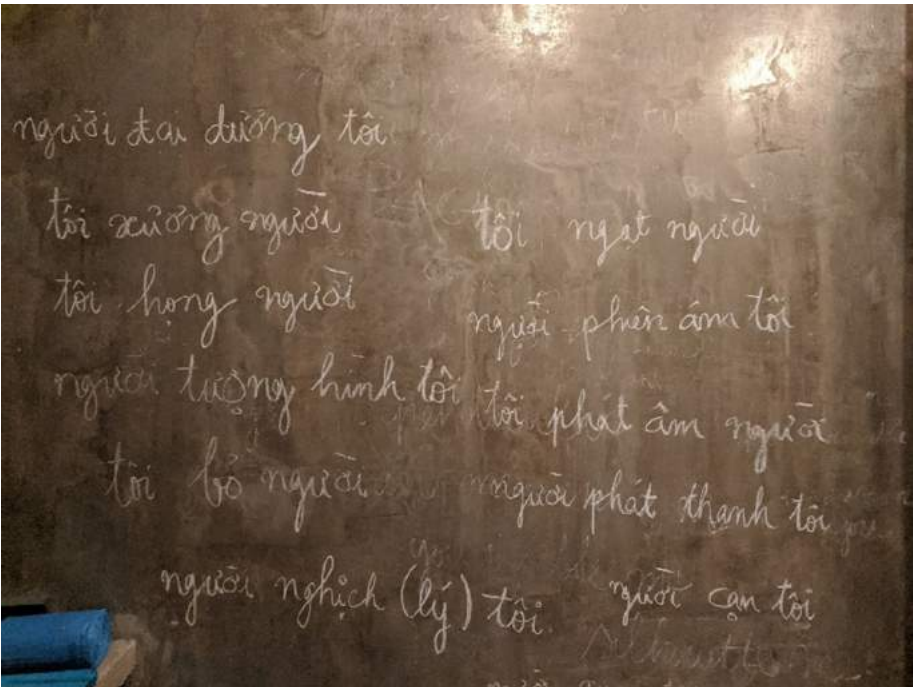 người đai dương tôi
tôi xương người
tôi họng người
người tượng hình tôi
tôi bỏ người
người nghịch (lý) tôi
tôi ngạt người
người phiên âm tôi
tôi phát âm người
người phát thanh tôi
người cạn tôi